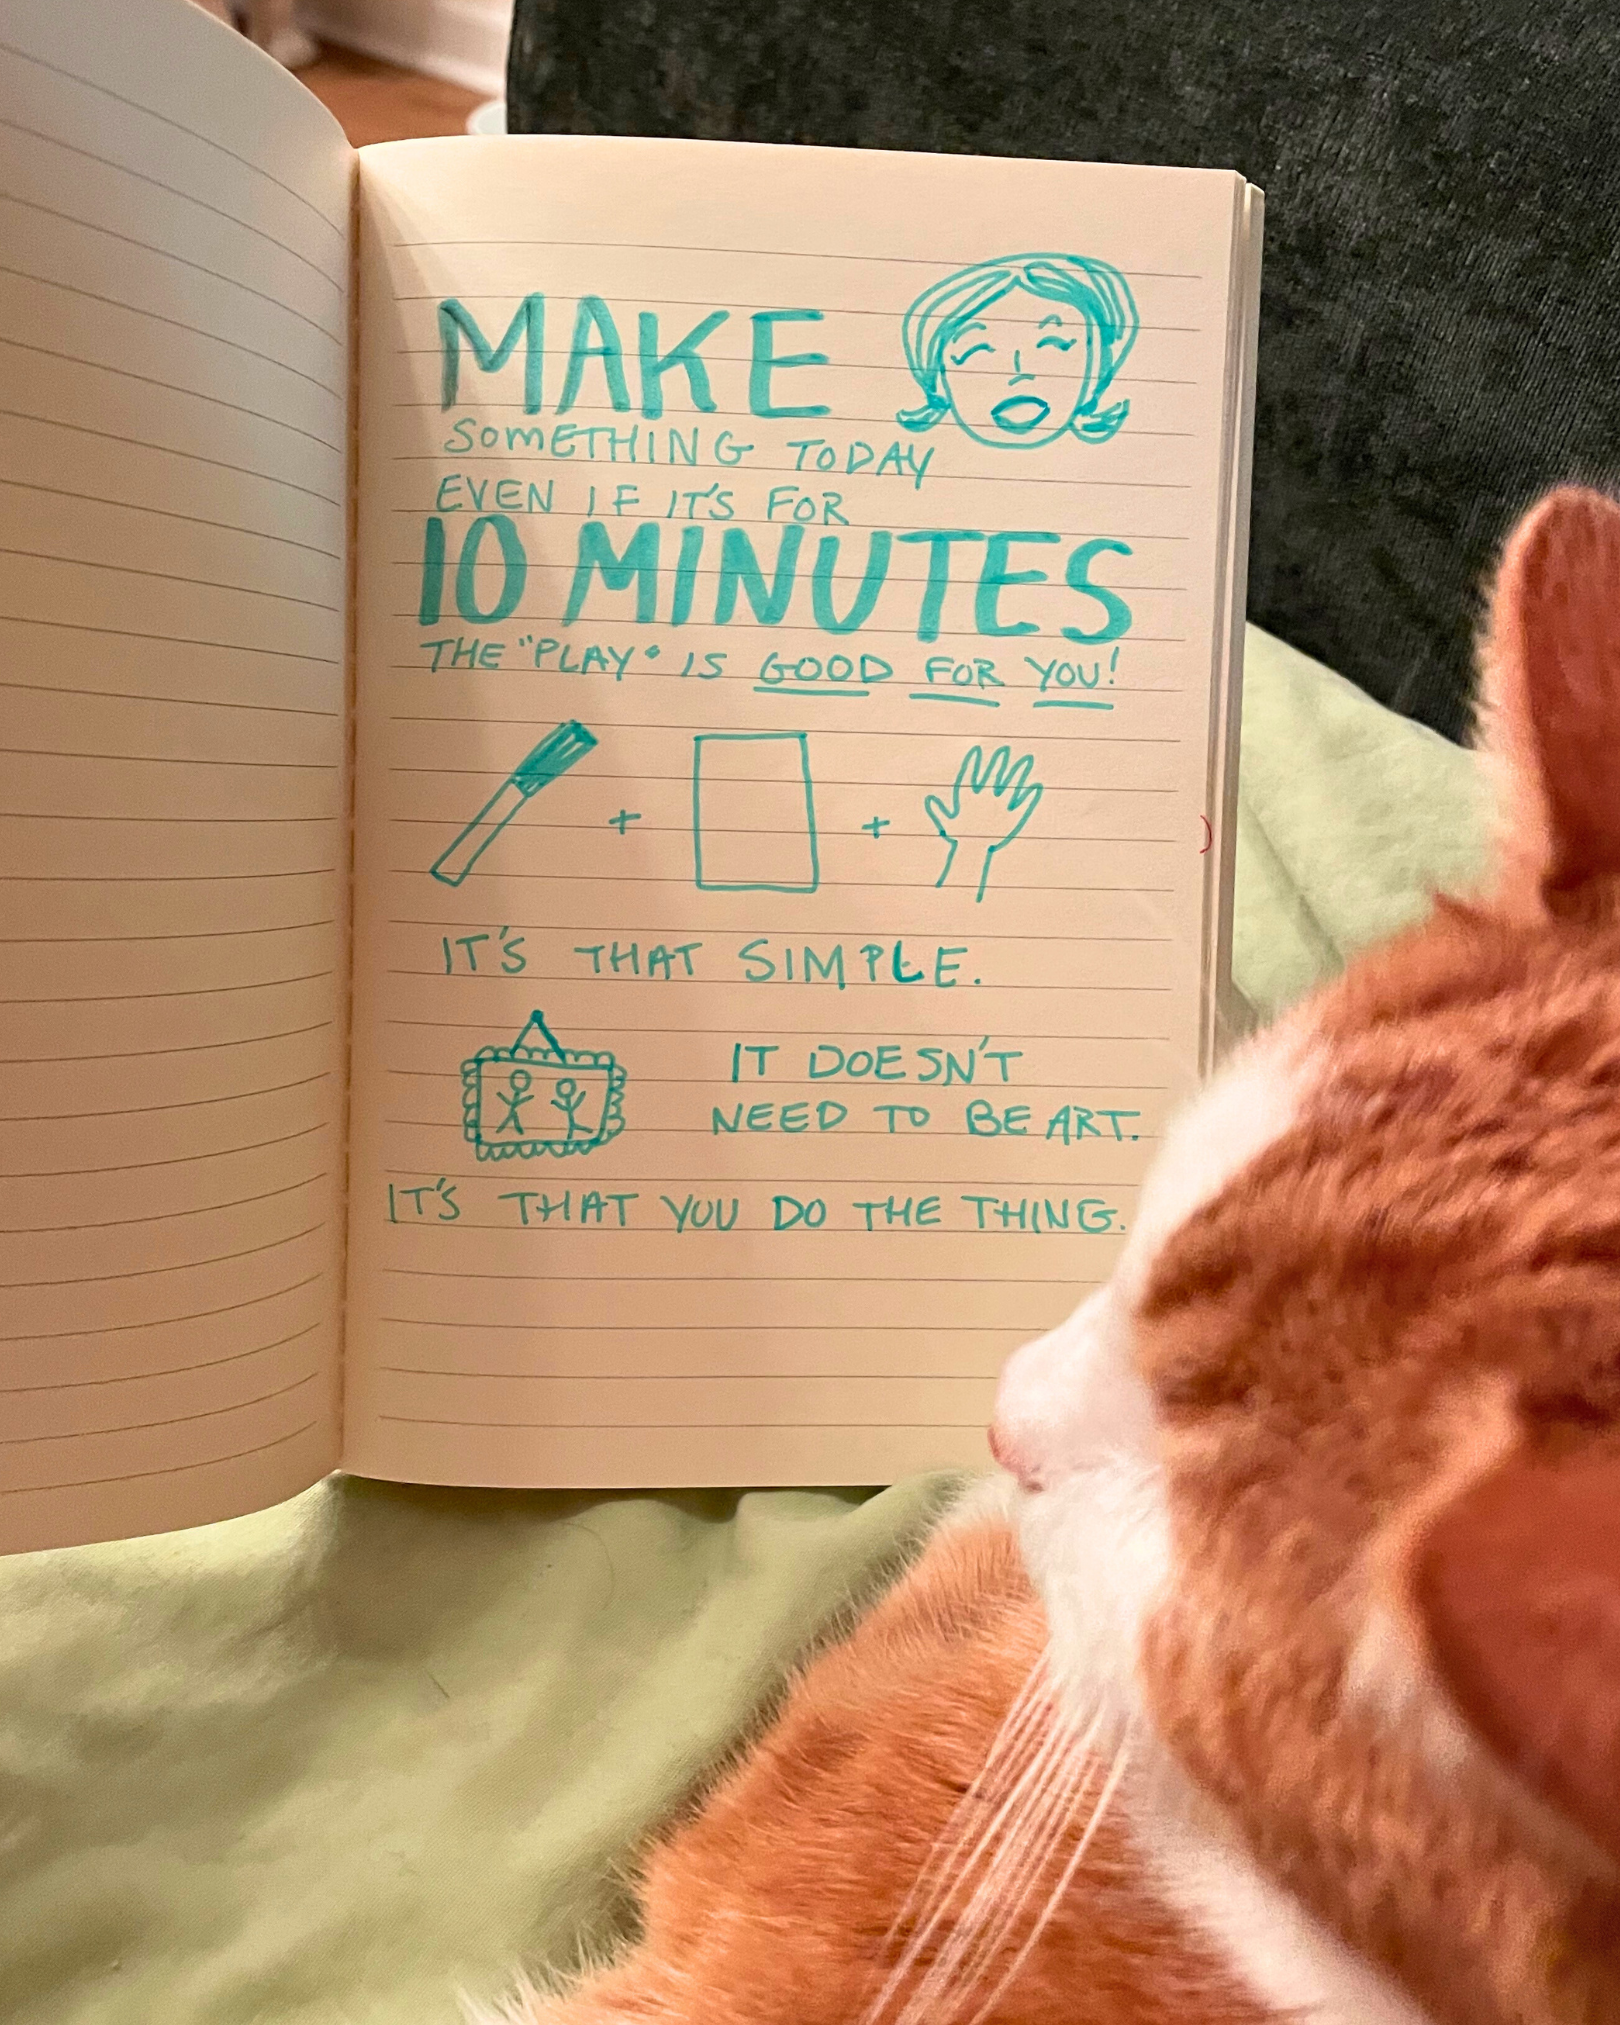 MAKE
SOMETHING TODAY
EVEN IF IT'S FOR
10 MINUTES
THE "PLAY" IS GOOD FOR YOU!
+ +
IT'S THAT SIMPLE.
IT DOESN'T
NEED TO BE ART.
IT'S THAT YOU DO THE THING.